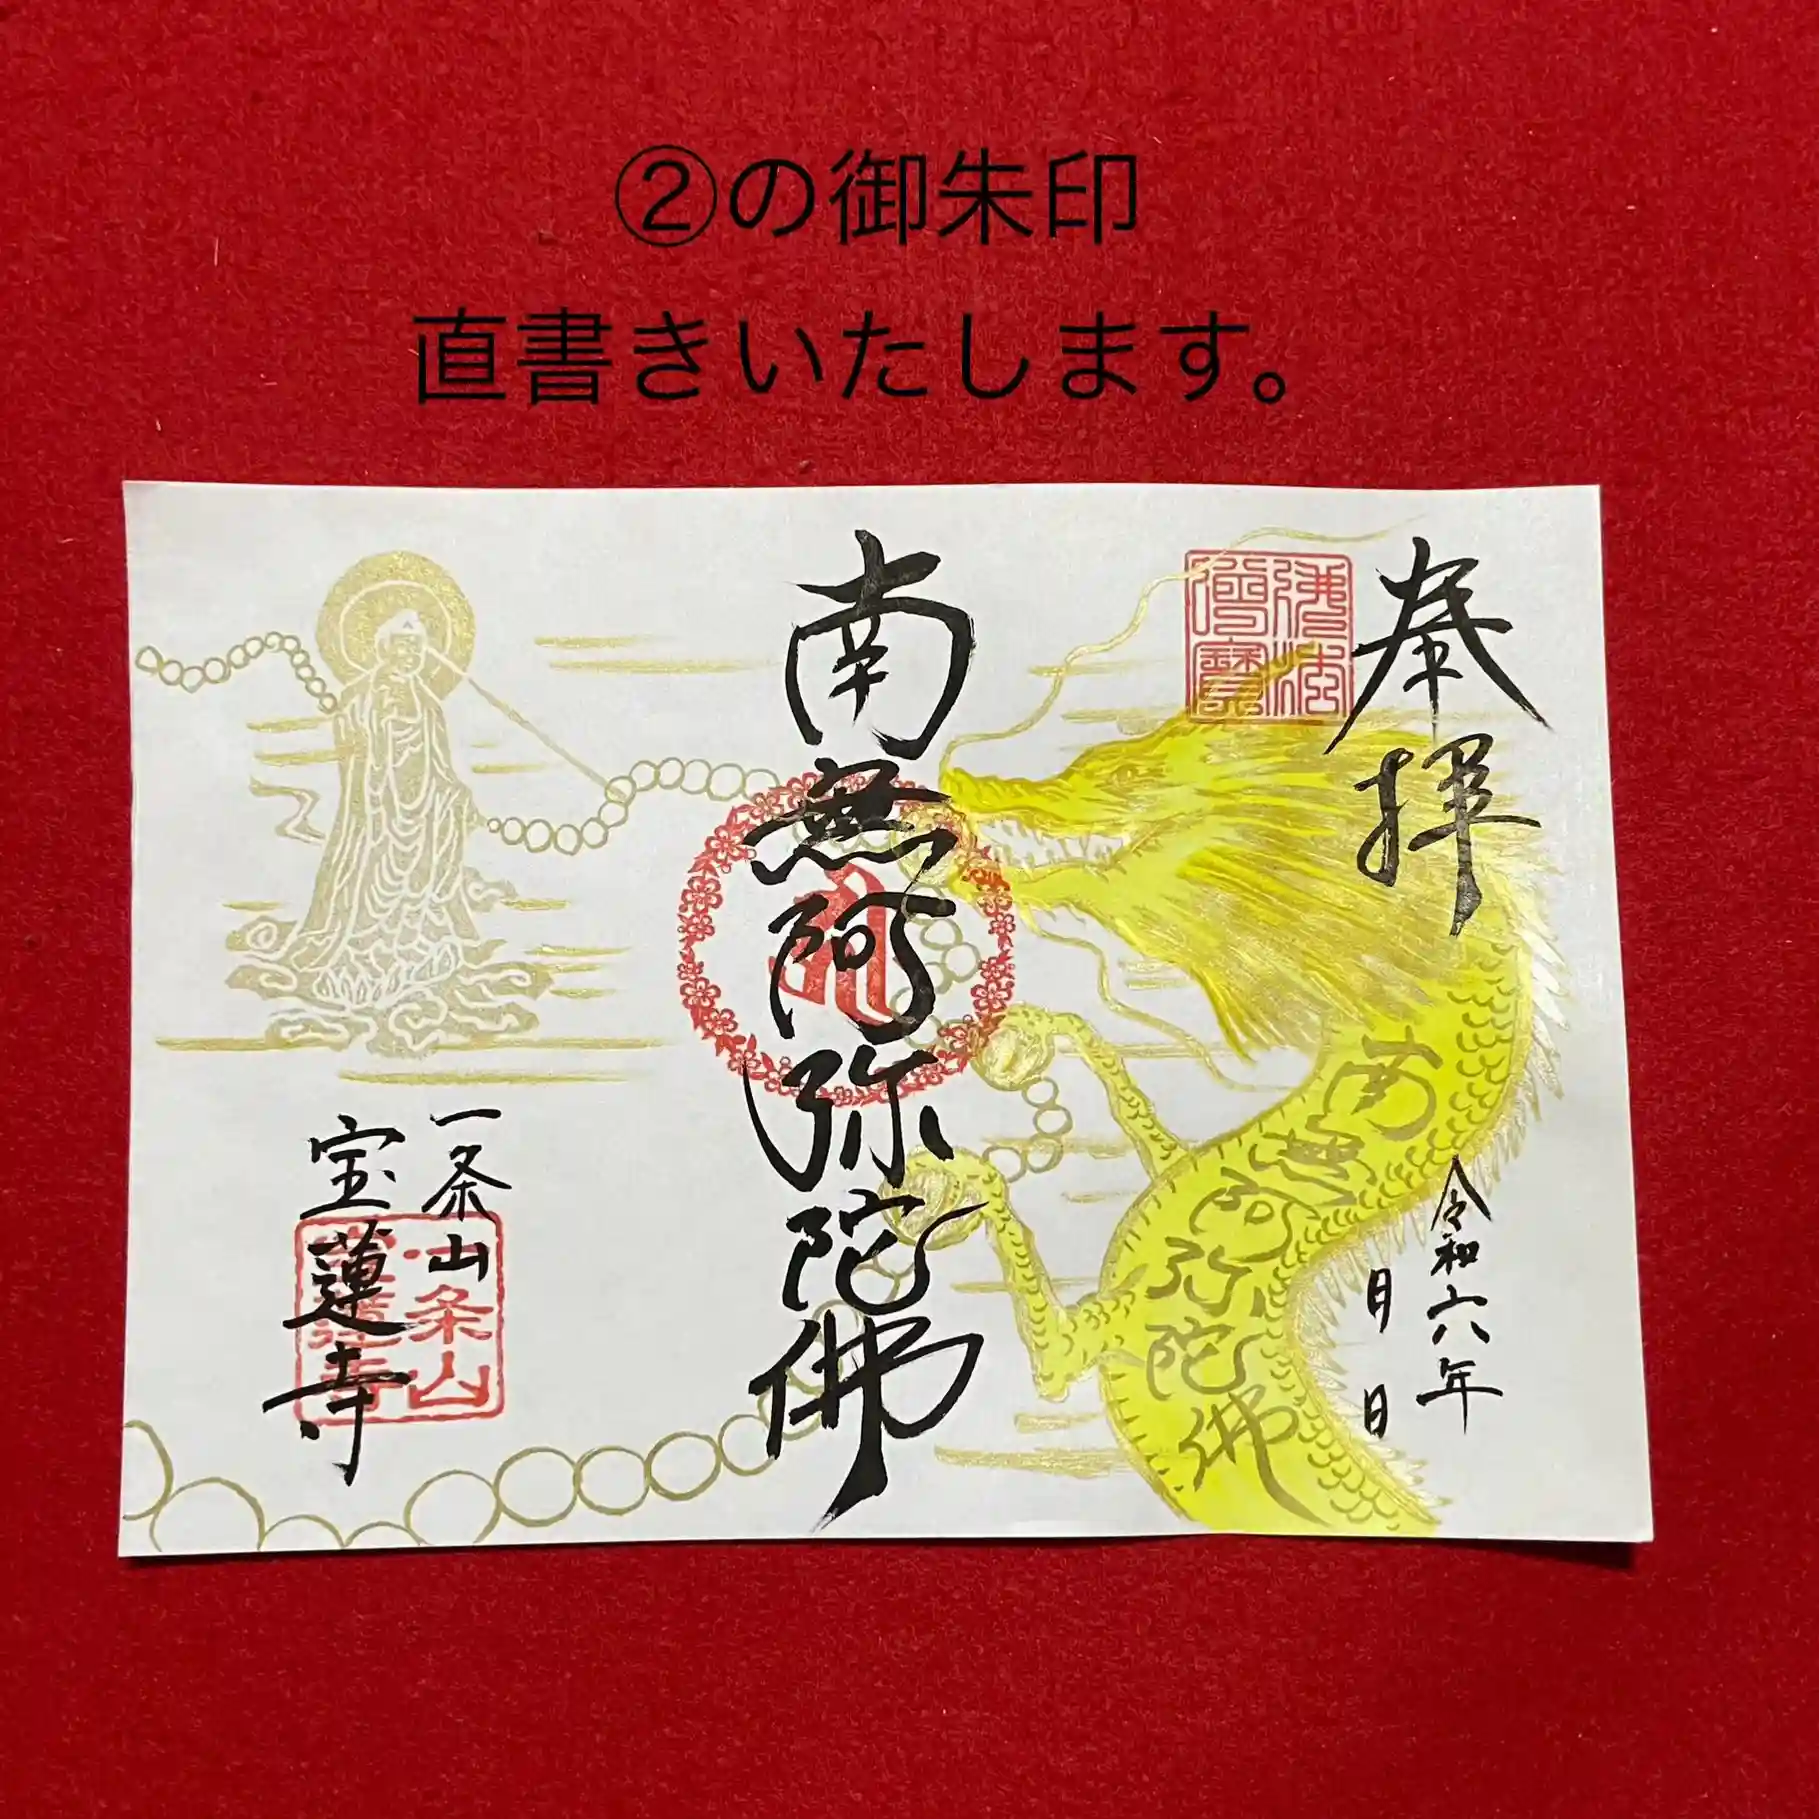 ②の御朱印
直書きいたします。
奉拝
佛法僧寶
令和六年
月 日
南無阿弥陀佛
南無阿弥陀佛
一条山
宝蓮寺
一条山
寶蓮寺